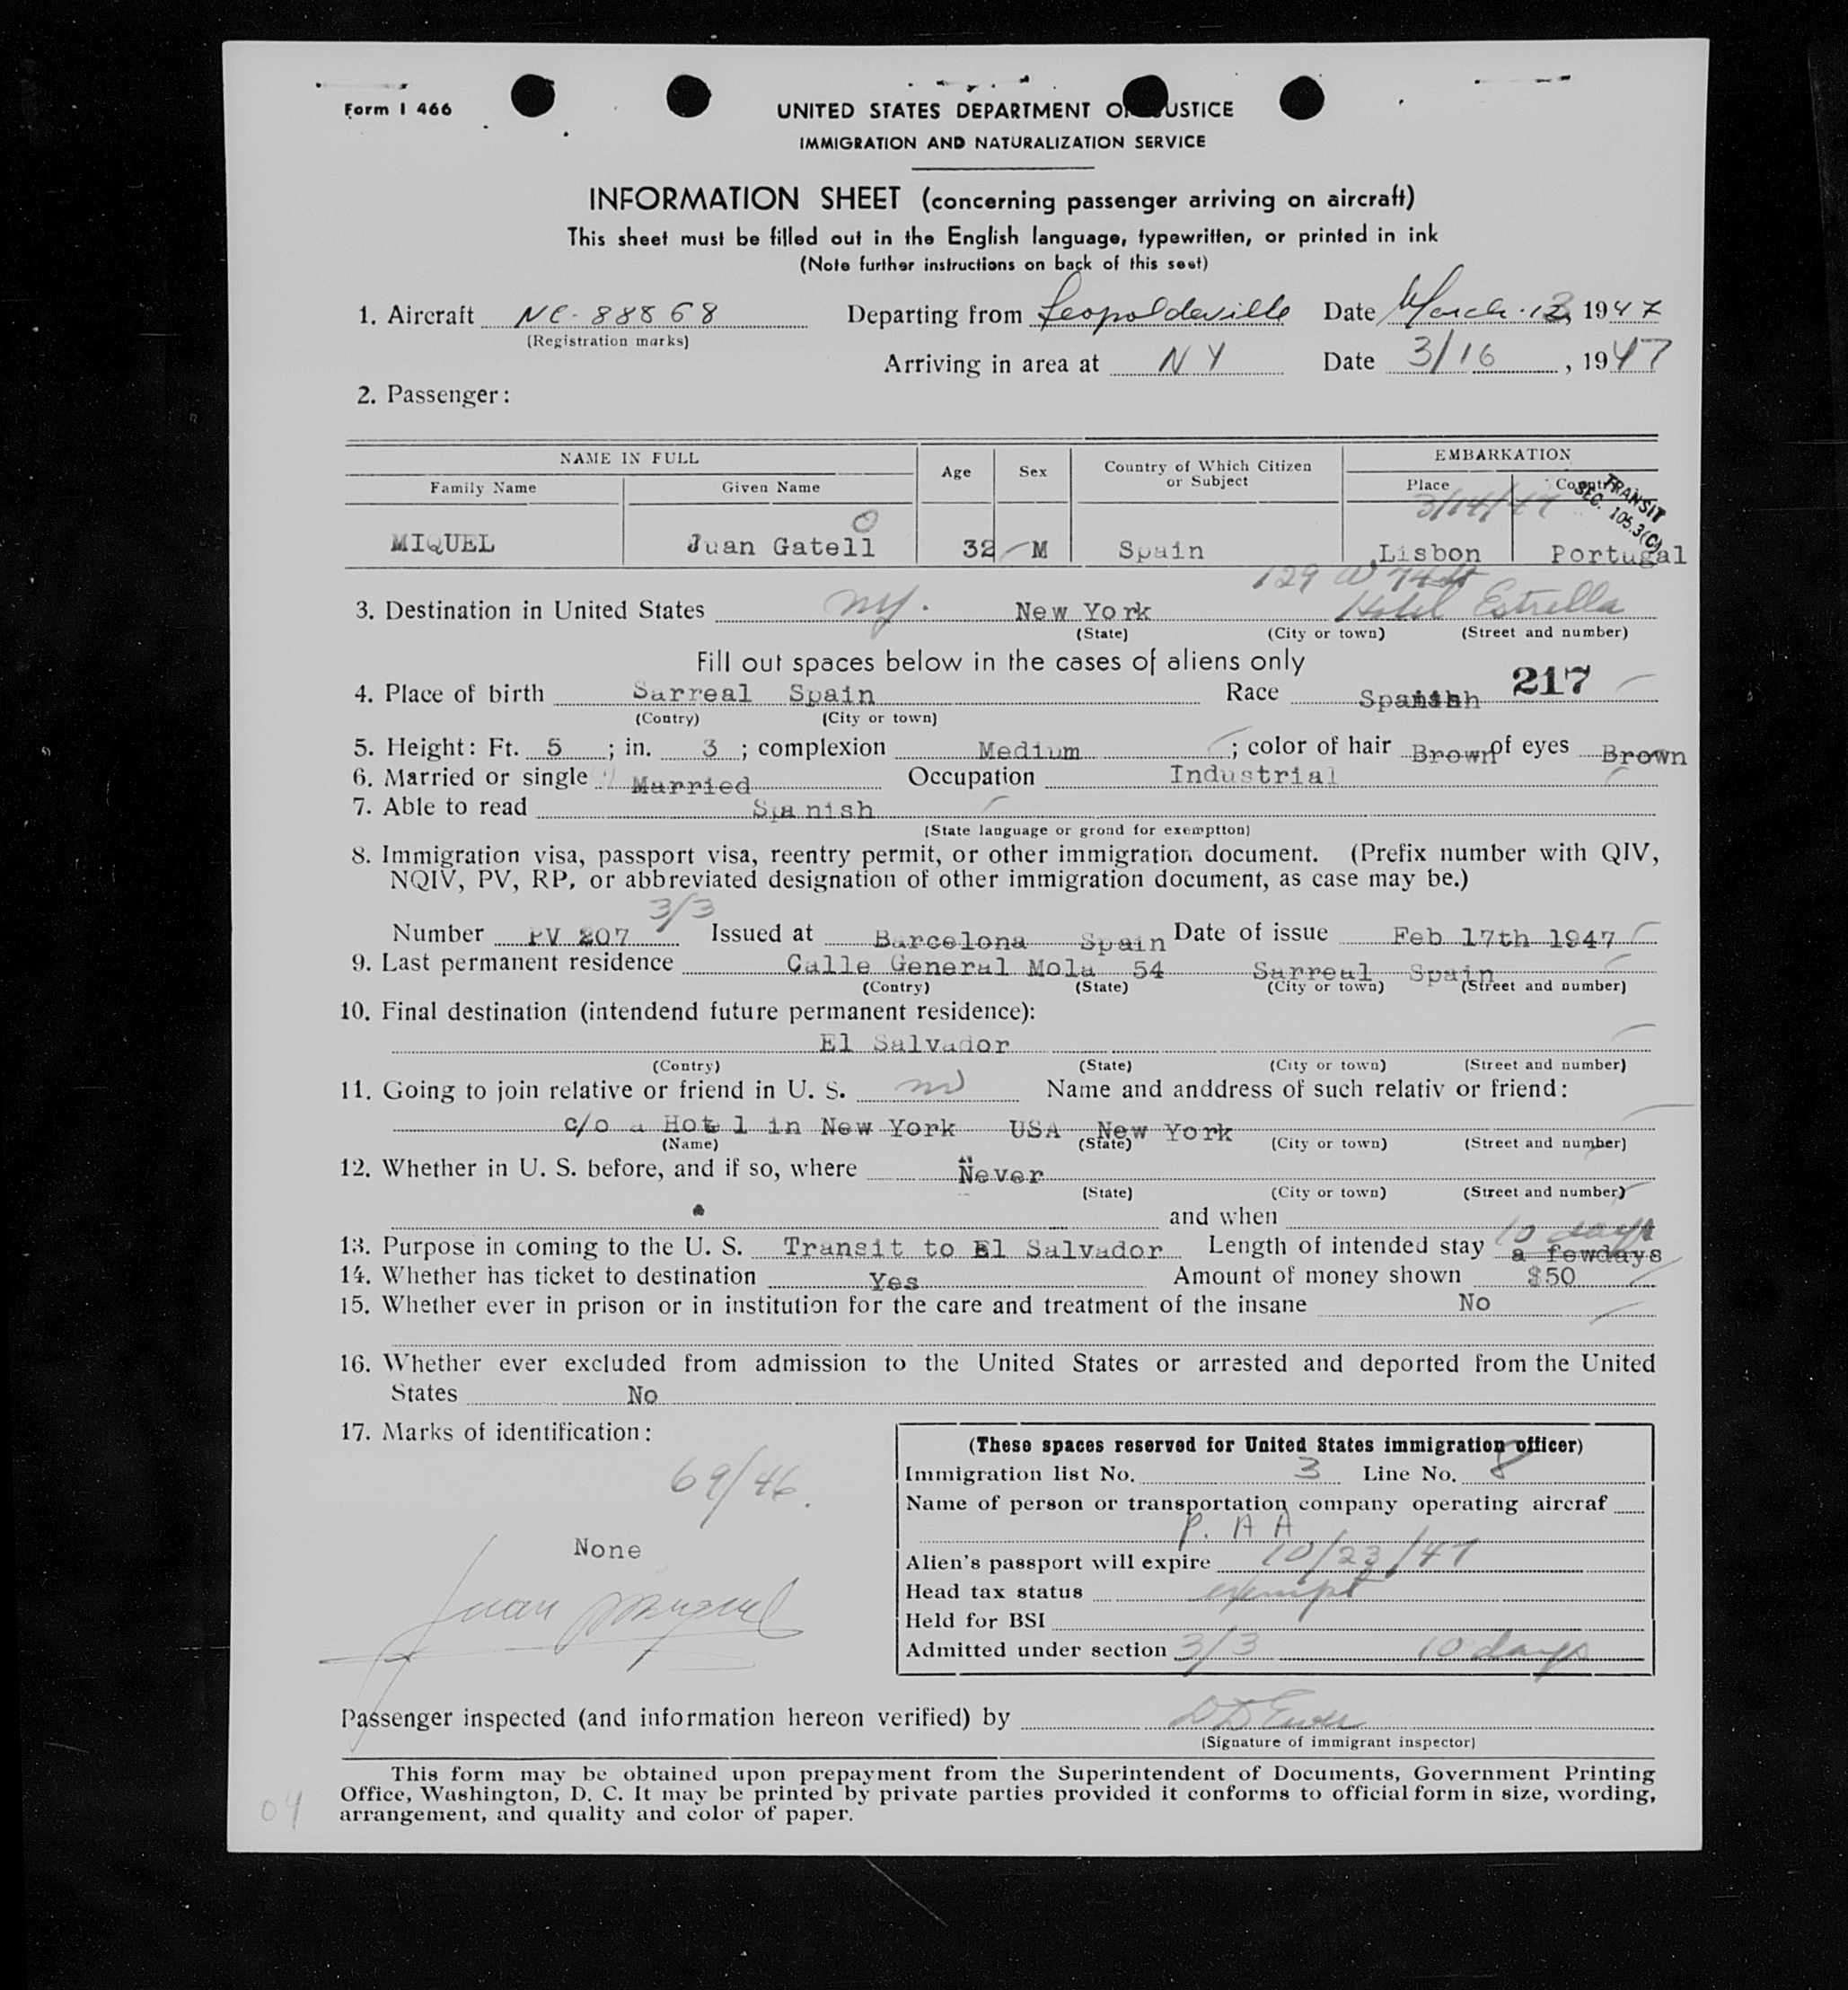 Form I 466
UNITED STATES DEPARTMENT OF JUSTICE
IMMIGRATION AND NATURALIZATION SERVICE
INFORMATION SHEET (concerning passenger arriving on aircraft)
This sheet must be filled out in the English language, typewritten, or printed in ink
(Note further instructions on back of this seet)
1. Aircraft NC-88868 Departing from Leopoldeville Date March 13, 1947
(Registration marks)
Arriving in area at NY Date 3/16, 1947
2. Passenger:
NAME IN FULL Age Sex Country of Which Citizen or Subject EMBARKATION
Family Name Given Name Place Country
3/14/47 TRANSIT SEC. 105.3(C)
0
MIQUEL Juan Gatell 32 M Spain Lisbon Portugal
129 W 74 St
3. Destination in United States NY. New York Hotel Estrella
(State) (City or town) (Street and number)
Fill out spaces below in the cases of aliens only
4. Place of birth Sarreal Spain Race Spanish 217
(Contry) (City or town)
5. Height: Ft. 5; in. 3; complexion Medium; color of hair Brown of eyes Brown
6. Married or single Married Occupation Industrial
7. Able to read Spanish
(State language or grond for exemptton)
8. Immigration visa, passport visa, reentry permit, or other immigration document. (Prefix number with QIV,
NQIV, PV, RP, or abbreviated designation of other immigration document, as case may be.)
3/3
Number PV 207 Issued at Barcelona Spain Date of issue Feb 17th 1947
9. Last permanent residence Calle General Mola 54 Sarreal Spain
(Contry) (State) (City or town) (Street and number)
10. Final destination (intendend future permanent residence):
El Salvador
(Contry) (State) (City or town) (Street and number)
11. Going to join relative or friend in U. S. no Name and anddress of such relativ or friend:
c/o a Hotel in New York USA New York
(Name) (State) (City or town) (Street and number)
12. Whether in U. S. before, and if so, where Never
(State) (City or town) (Street and number)
and when
10 days
13. Purpose in coming to the U. S. Transit to El Salvador Length of intended stay a fewdays
14. Whether has ticket to destination Yes Amount of money shown $50
15. Whether ever in prison or in institution for the care and treatment of the insane No
16. Whether ever excluded from admission to the United States or arrested and deported from the United
States No
17. Marks of identification:
69/46.
None
Juan Miquel
(These spaces reserved for United States immigration officer)
Immigration list No. 3 Line No. 8
Name of person or transportation company operating aircraf
P. A A
Alien's passport will expire 10/23/47
Head tax status exempt
Held for BSI
Admitted under section 3/3 10 days
Passenger inspected (and information hereon verified) by
(Signature of immigrant inspector)
This form may be obtained upon prepayment from the Superintendent of Documents, Government Printing
Office, Washington, D. C. It may be printed by private parties provided it conforms to official form in size, wording,
arrangement, and quality and color of paper.
04